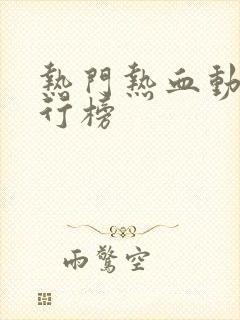 熱門熱血動
行榜
雨驚空